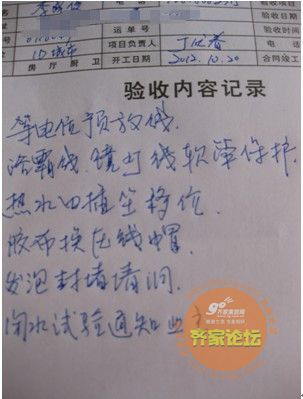 运单号
验收日期
项目负责人
验收时间
电话
房厅厨卫
开工日期
2012.10.20
合同竣工
验收内容记录
等电位预放线.
浴霸线.镜灯线软管保护.
热水口插座移位.
胶布换压线帽.
发泡封堵墙洞.
闭水试验通知业主
齐家论坛